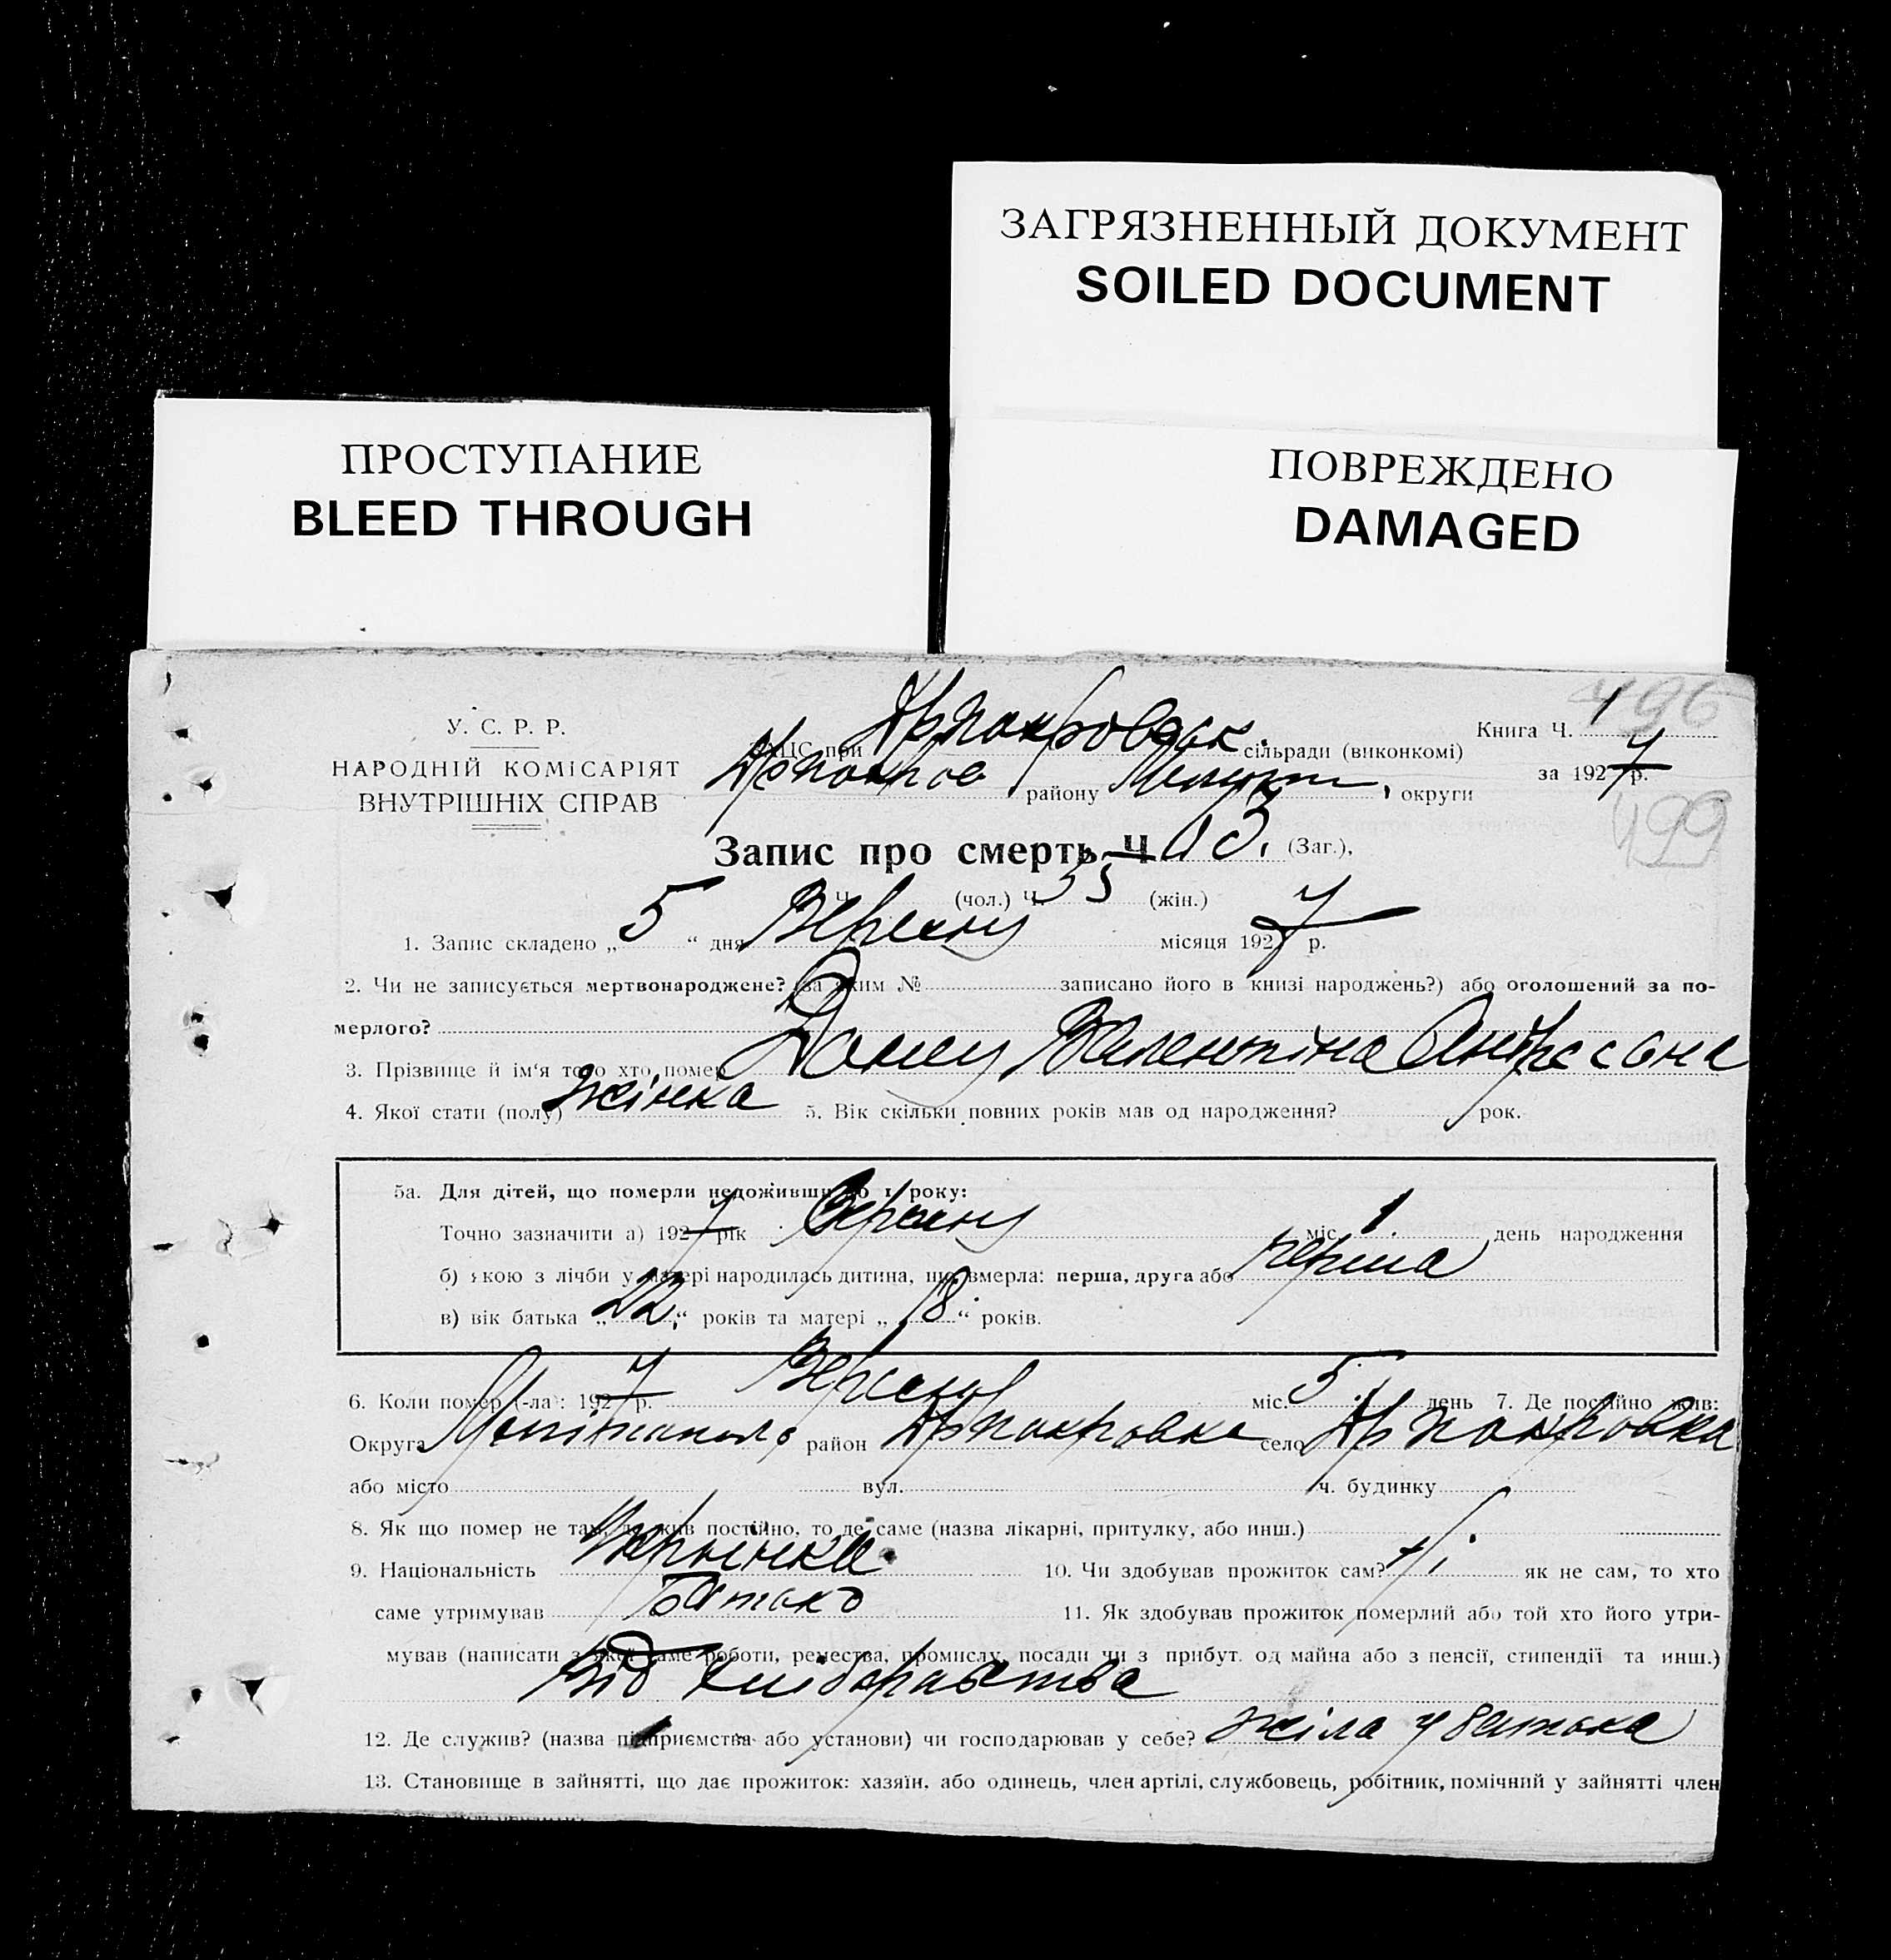 ЗАГРЯЗНЕННЫЙ ДОКУМЕНТ
SOILED DOCUMENT
ПРОСТУПАНИЕ
BLEED THROUGH
ПОВРЕЖДЕНО
DAMAGED
496
У. С. Р. Р.
НАРОДНІЙ КОМІСАРІЯТ
ВНУТРІШНІХ СПРАВ
ЗАЦС при сільради (виконкомі)
району округи
Книга Ч. 1
за 1927 р.
199
Запис про смерть Ч (Заг.),
Ч. (чол.) Ч. 35 (жін.)
1. Запис складено „ 5 “ дня місяця 1927 р.
2. Чи не записується мертвонароджене? (за яким № записано його в книзі народжень?) або оголошений за по-
мерлого?
3. Прізвище й ім'я того хто помер Валентіна
4. Якої стати (полу) жінка 5. Вік скільки повних років мав од народження? рок.
5а. Для дітей, що померли недоживши до 1 року:
Точно зазначити а) 1927 рік міс. 1 день народження
б) якою з лічби у матері народилась дитина, що вмерла: перша, друга або перша
в) вік батька „ 22 “ років та матері „ 18 “ років.
6. Коли помер (-ла): 1927 р. міс. 5 день 7. Де постійно жив:
Округа район село
або місто вул. ч. будинку
8. Як що помер не там, де жив постійно, то де саме (назва лікарні, притулку, або инш.)
9. Національність 10. Чи здобував прожиток сам? як не сам, то хто
саме утримував Батько 11. Як здобував прожиток померлий або той хто його утри-
мував (написати з якої саме роботи, ремества, промислу, посади чи з прибут. од майна або з пенсії, стипендії та инш.)
від хліборабства
12. Де служив? (назва підприємства або установи) чи господарював у себе? жіла у батька
13. Становище в зайнятті, що дає прожиток: хазяїн, або одинець, член артілі, службовець, робітник, помічний у зайнятті член